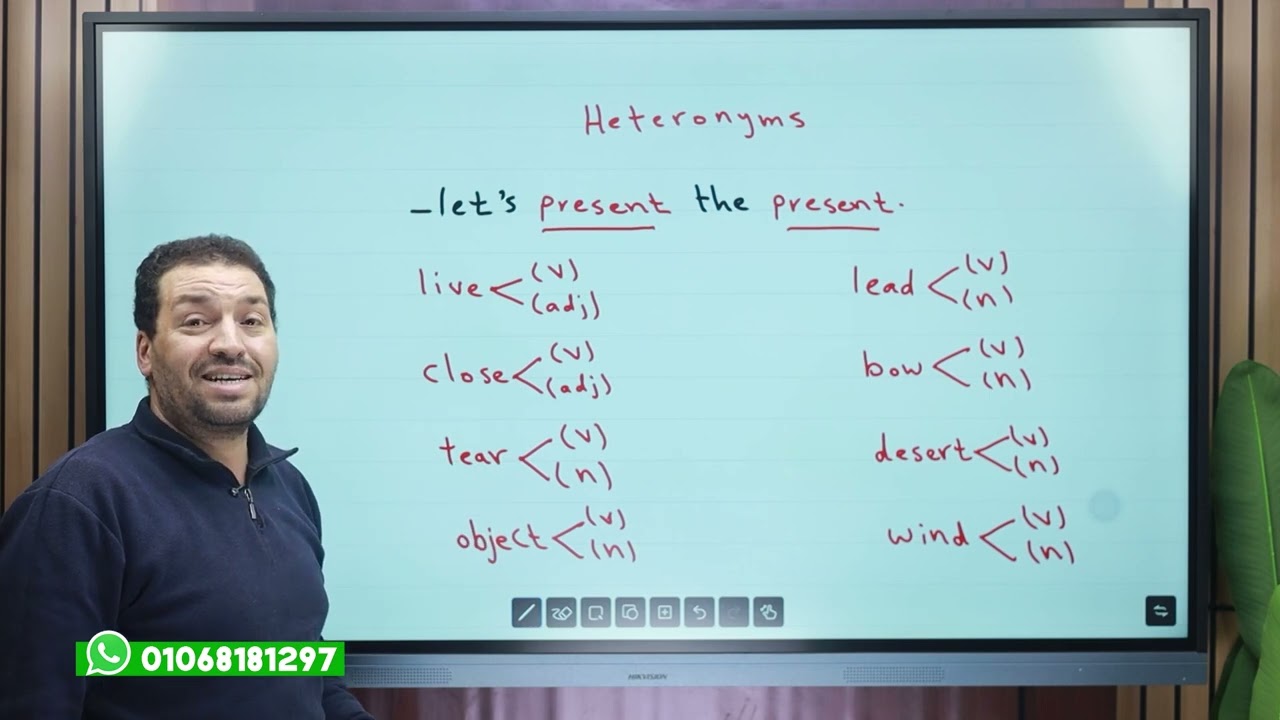 Heteronyms
–let's present the present.
live (v)
(adj)
lead (v)
(n)
close (v)
(adj)
bow (v)
(n)
tear (v)
(n)
desert (v)
(n)
object (v)
(n)
wind (v)
(n)
01068181297
HIKVISION